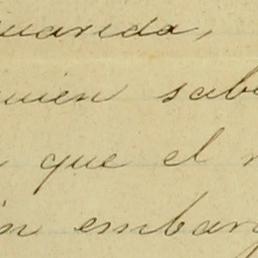 guarida,
quien sabe
que el
in embarg